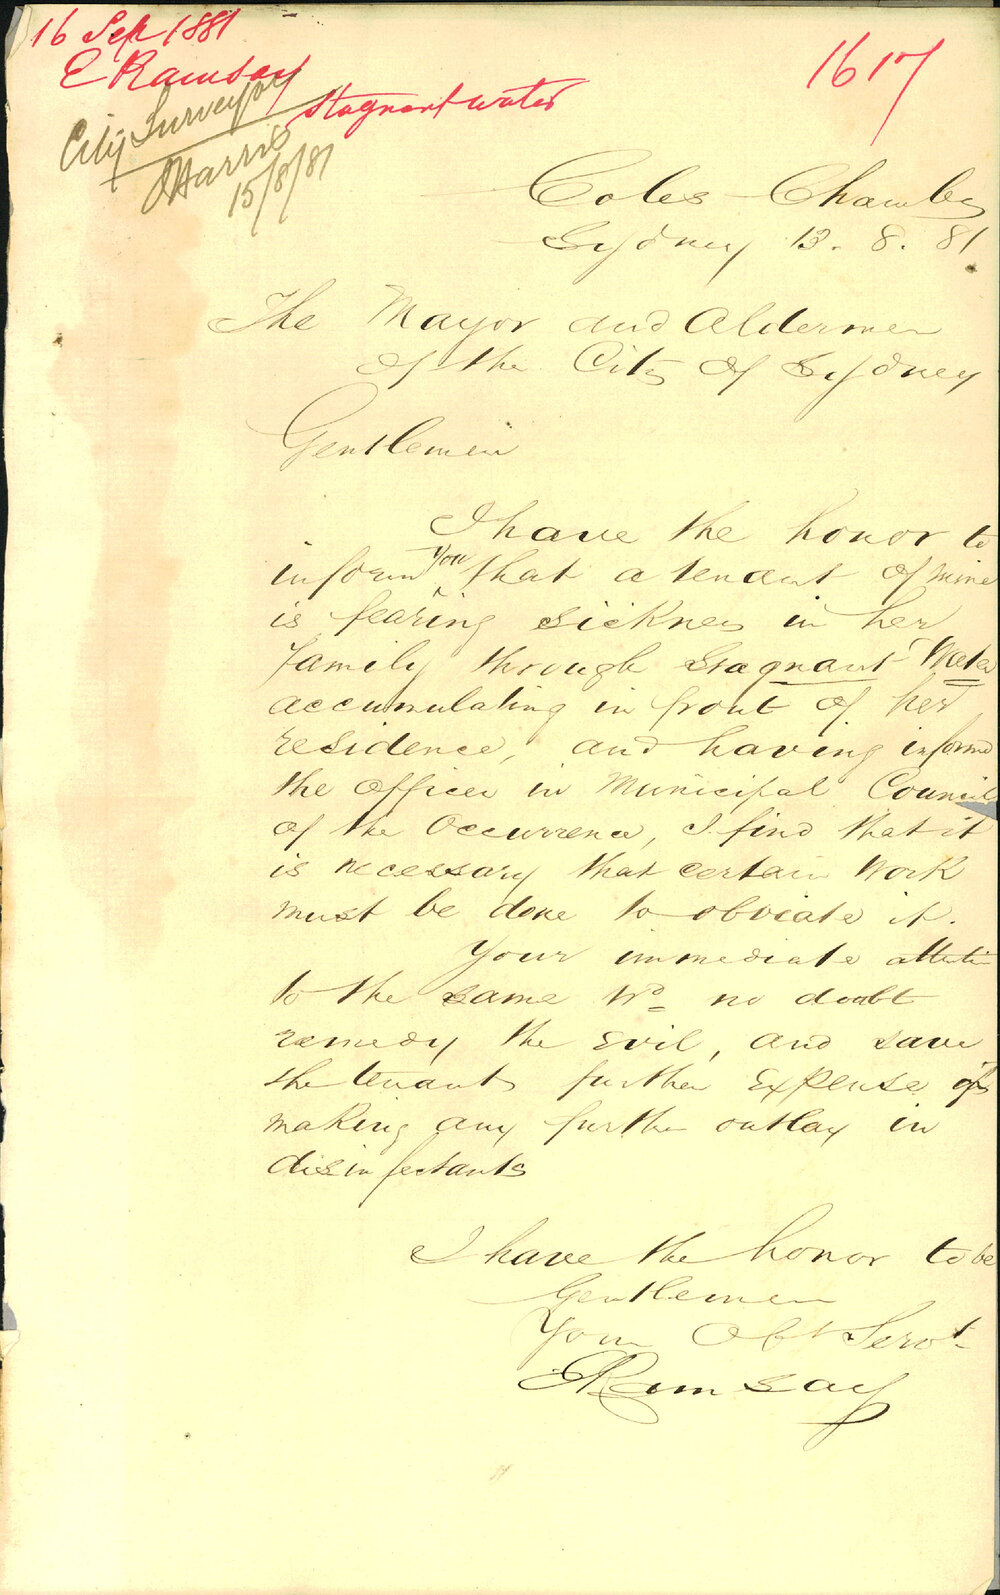 16 Sep 1881
E Ramsay
Stagnant water
1617
City Surveyor
Harris
15/8/81
Coles Chambs
Sydney 13. 8. 81
The Mayor and Aldermen
of the City of Sydney
Gentlemen
I have the honor to
inform you that a tenant of mine
is fearing sickness in her
family through Stagnant Water
accumulating in front of her
residence, and having informed
the officer in Municipal Council
of the Occurrence, I find that it
is necessary that certain work
must be done to obviate it.
Your immediate attention
to the same wd no doubt
remedy the Evil, and save
the tenants further Expense of
making any further outlay in
disinfectants
I have the honor to be
Gentlemen
Your Obt Servt
E Ramsay